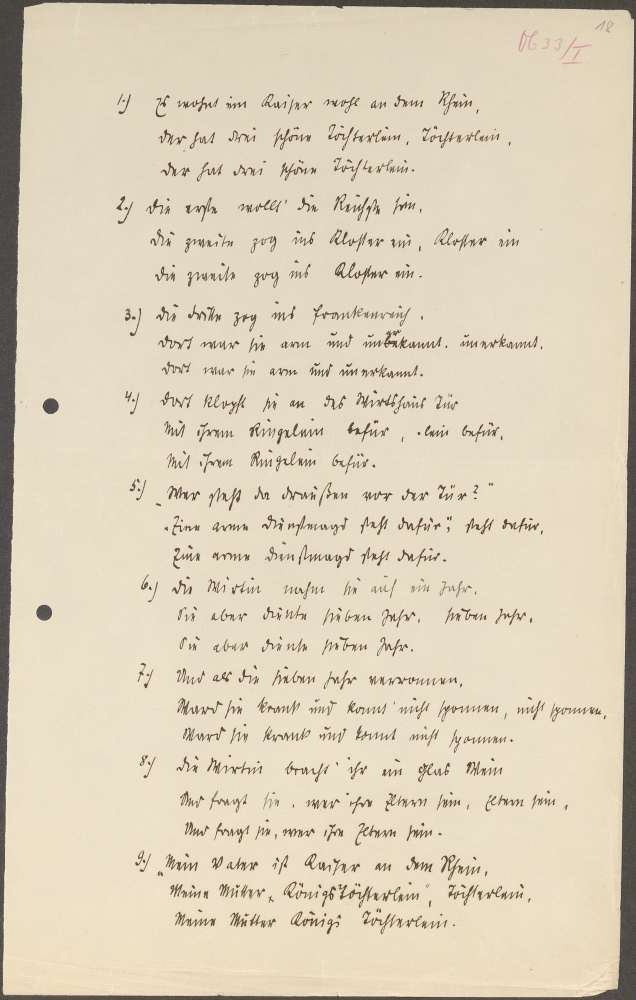 18
VG 33/I
1.) Es wohnt ein Kaiser wohl an dem Rhein,
der hat drei schöne Töchterlein, Töchterlein,
der hat drei schöne Töchterlein.
2.) die erste wollt' die Reichste sein,
die zweite zog ins Kloster ein, Kloster ein
die zweite zog ins Kloster ein.
3.) die dritte zog ins Frankenreich.
dort war sie arm und unerkannt. unerkannt.
dort war sie arm und unerkannt.
4.) dort klopft sie an des Wirtshaus Tür
Mit ihrem Ringelein befür, -lein befür,
Mit ihrem Ringelein befür.
5.) „Wer steht da draußen vor der Tür?"
„Eine arme Dienstmagd steht dafür", steht dafür,
Eine arme Dienstmagd steht dafür.
6.) die Wirtin nahm sie auf ein Jahr.
Sie aber diente sieben Jahr, sieben Jahr,
Sie aber diente sieben Jahr.
7.) Und als die sieben Jahr verronnen,
Ward sie krank und konnt' nicht sponnen, nicht sponnen,
Ward sie krank und konnt nicht sponnen.
8.) die Wirtin bracht' ihr ein Glas Wein
Und fragt sie, wer ihre Eltern sein, Eltern sein,
Und fragt sie, wer ihre Eltern sein.
9.) „Mein Vater ist Kaiser an dem Rhein,
Meine Mutter, Königs Töchterlein", Töchterlein,
Meine Mutter Königs Töchterlein.